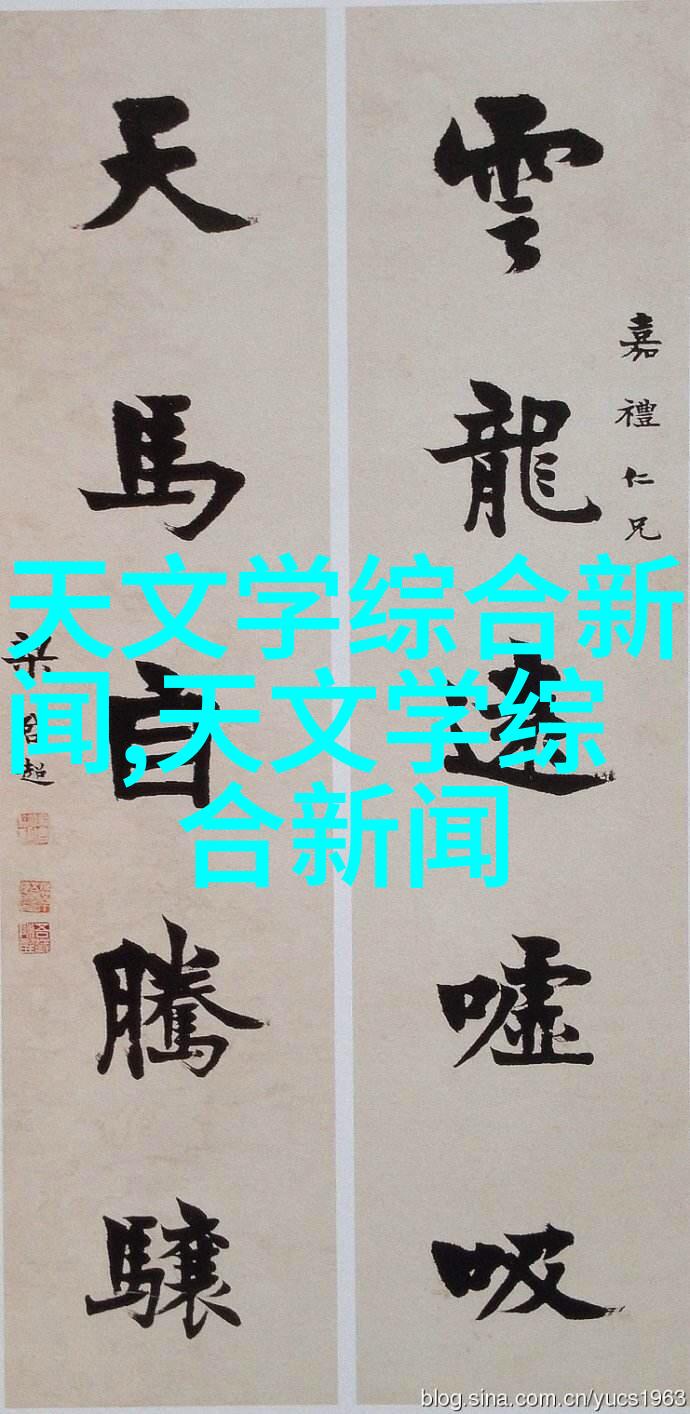 雲龍遠噓吸
嘉禮仁兄
天馬自騰驤
梁 超
天文学综合新
闻,天文学综
合新闻
blog.sina.com.cn/yucs1963